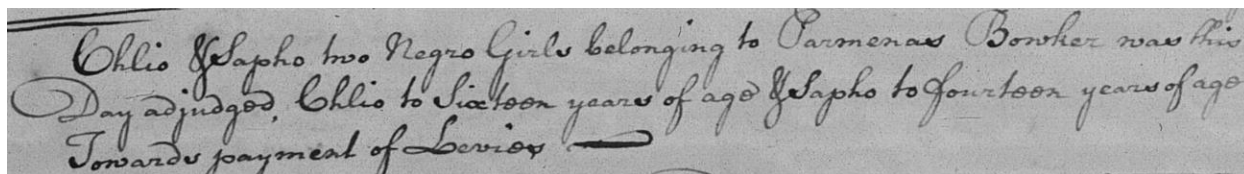 Chlio & Sapho two Negro Girls belonging to Parmenas Bowker was this
Day adjudged, Chlio to Sixteen years of age & Sapho to fourteen years of age
Towards payment of Levies